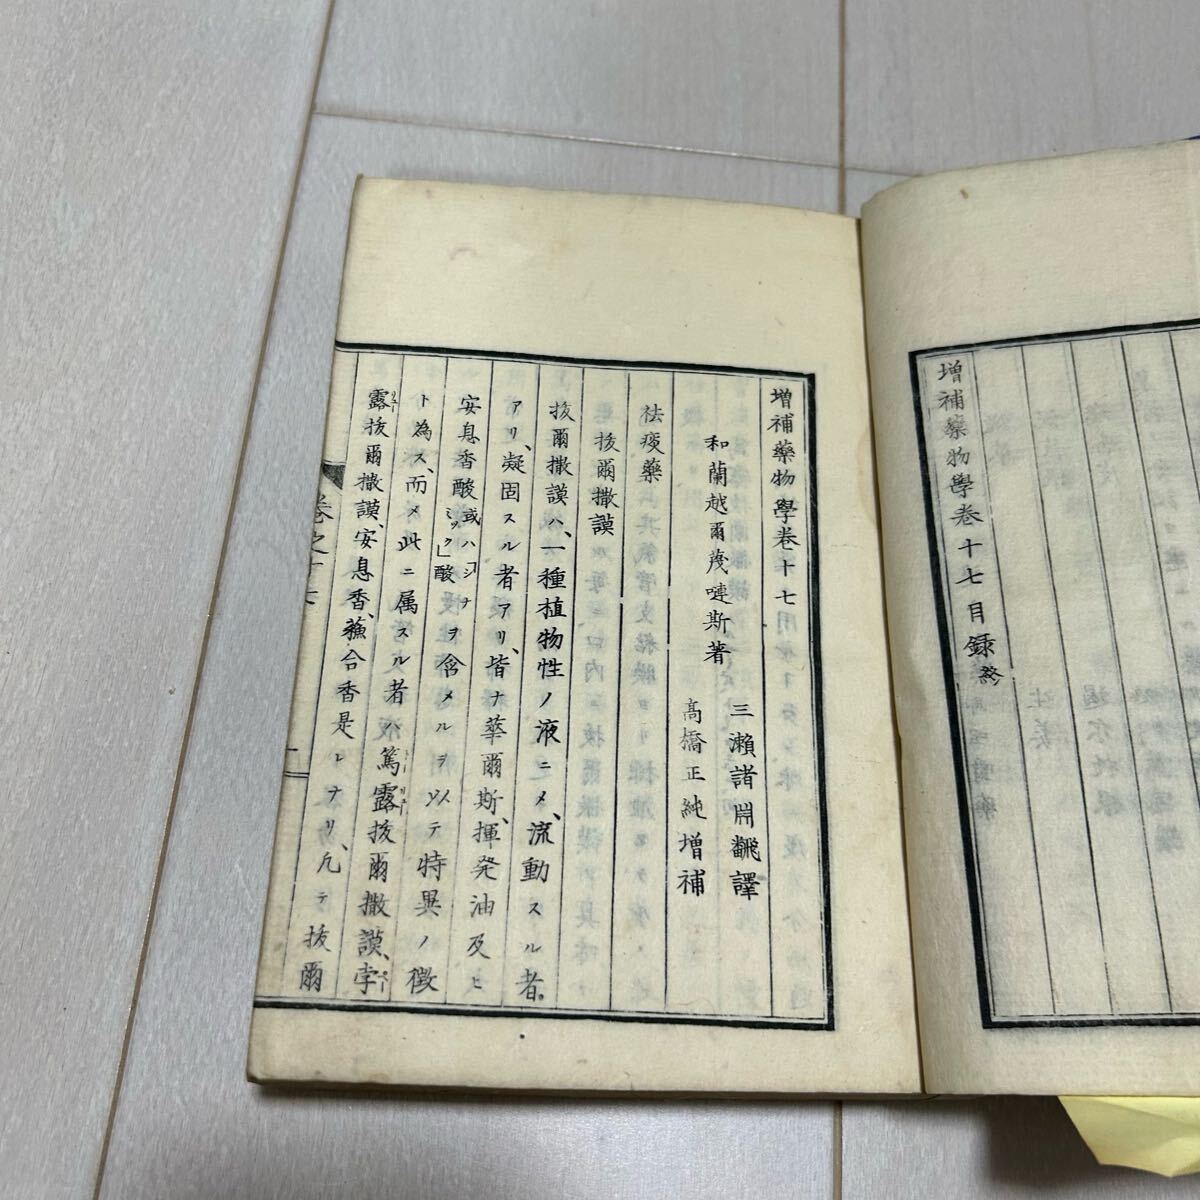 増補藥物學卷十七目録終
増補藥物學卷十七
和蘭越爾蔑嗹斯著
三瀬諸淵飜譯
高橋正純増補
祛痰藥
抜爾撒謨
抜爾撒謨ハ、一種植物性ノ液ニメ、流動スル者。
アリ、凝固スル者アリ、皆ナ華爾斯、揮発油及ヒ
安息香酸或ハ「シナミック」酸ヲ含メルヲ以テ特異ノ徴
ト為ス、而メ此ニ属スル者ハ篤露抜爾撒謨、孛
露抜爾撒謨、安息香、蘓合香是レナリ、凢テ抜爾
卷之十七
一